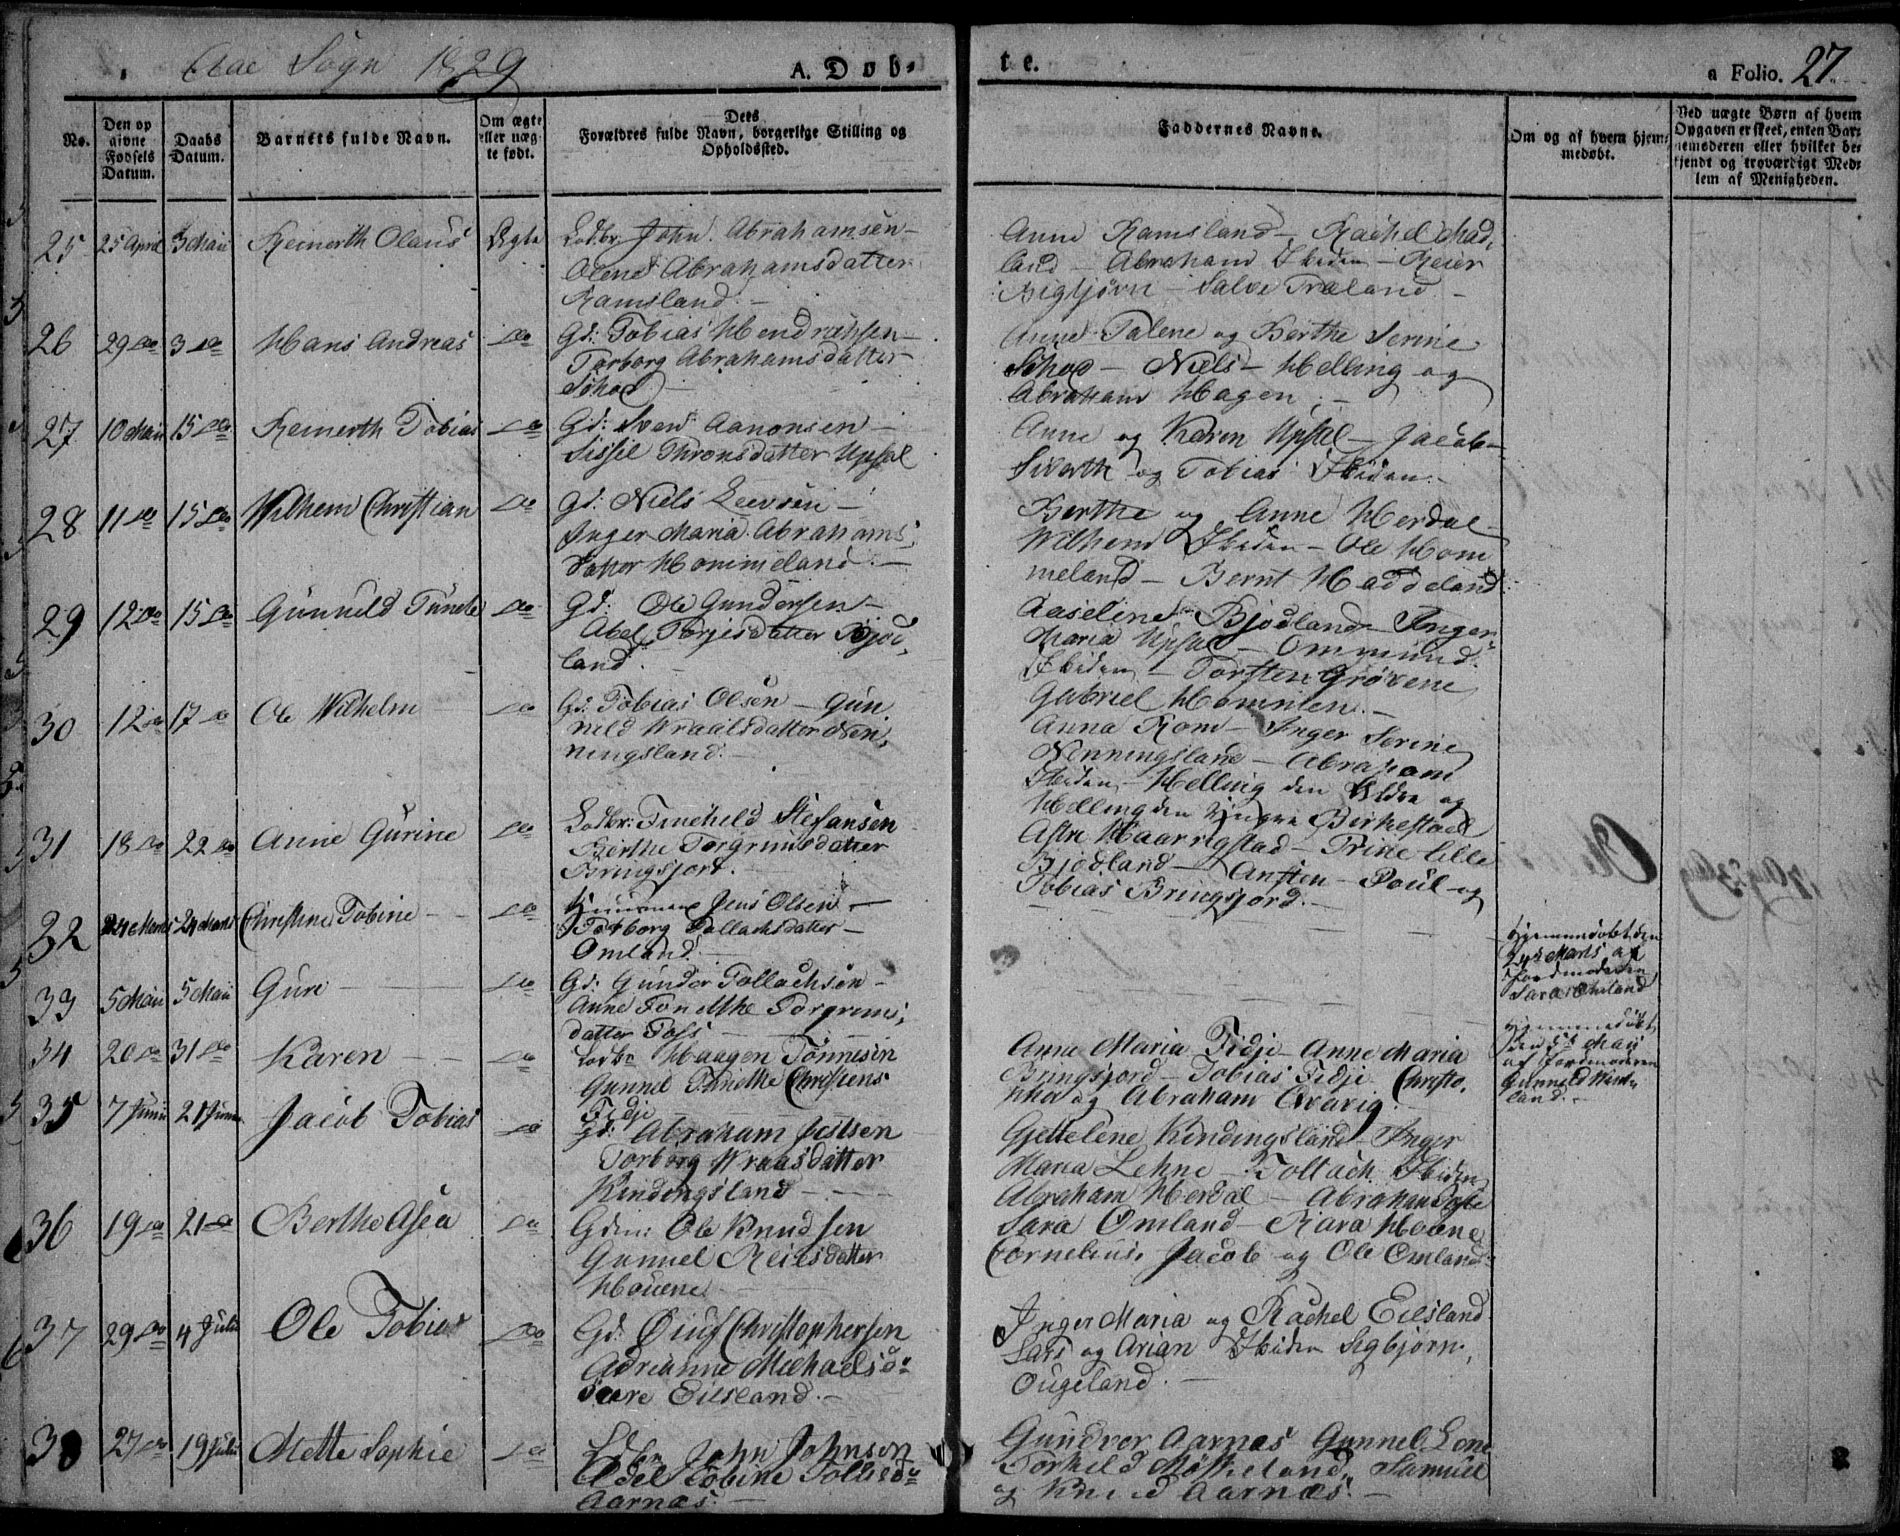 Aae Sogn 1829
A. Døb-
te.
a Folio. 27
No.
Den op
givne
Fødsels
Datum.
Daabs
Datum.
Barnets fulde Navn.
Om ægte
eller uæg
te født.
Dets
Forældres fulde Navn, borgerlige Stilling og
Opholdssted.
Faddernes Navne.
Om og af hvem hjem-
medøbt.
Ved uægte Børn af hvem
Opgaven er skeet, enten Bar-
nemoderen eller hvilket be-
kjendt og troværdigt Med-
lem af Menigheden.
25 25 April 3 Maii Reinerth Olaus Ægte Ledbr John Abrahamsen -
Olene Abrahamsdatter
Ramsland. -
Anne Ramsland - Rachel Mad,
land - Abraham Ibiden - Reier
Birgtjøvn - Salve Træland -
26 29 do 3 do Hans Andreas do Gd: Tobias Hendrichsen -
Torborg Abrahamsdatter -
Schoe -
Anne Talene og Berthe Serine
Schoe - Niels - Helling og
Abraham Hagen. -
27 10 Maii 15 do Reinerth Tobias do Gd: Sven Aanonsen -
Sissel Thronsdatter Upsal
Anne og Karen Upsal - Jacob -
Siverth og Tobias Ibiden. -
28 11 do 15 do Wilhem Christian do Gd: Niels Leevsen -
Inger Maria Abrahams,
datter Hommeland. -
Berthe og Anne Herdal -
Wilhem Ibiden - Ole Hom
meland - Bernt Haddeland
29 12 do 15 do Gunnild Tunele do Gd: Ole Gundersen -
Abel Torjesdatter Bjod,
land. -
Aaseline Bjodland - Inger
Maria Upsal - Ommund
Ibiden - Torsten Grövene
Gabriel Hommen. -
30 12 do 17 do Ole Wilhelm do Gd: Tobias Olsen - Gun
nild Wraalsdatter Nen,
ningsland. -
Anna Rom - Inger Serine
Nenningsland - Abraham
Ibiden - Helling den Eldre og
Helling den Yngre Birkestoel
31 18 do 22 do Anne Gurine do Ledbr: Tineheld Stefansen
Berthe Torgrimsdatter
Bringsjord. -
Astri Haarrigstad - Trine Lille
Bjodland - Ansten - Poul og
Tobias Bringsjord. -
32 24 Marts 24 Marts Christine Tobine - - do Huusmand Jens Olsen -
Torborg Tallachsdatter -
Omland. -
Hjemmedøbt den
24de Marts af
Jordmoderen
Sara Omland
33 5 Maii 5 Maii Guri - do Gd: Gunder Tollachsen -
Anne Tonethe Torgrims,
datter Foss -
Hjemmedøbt
den 5te Maii
af Jordmoderen
Gunnild
land. -
34 20 do 31 do Karen - - do Ledbr Haagen Tönnesen
Gunnil Tonethe Christens
Fidje
Anne Maria Fidje - Anne Maria
Bringsjord - Tobias Fidje Christo,
pher og Abraham Qvavig. -
35 7 Junii 21 Junii Jacob Tobias do Gd: Abraham Jeilsen
Torborg Wraalsdatter
Kindingsland -
Gjettelene Kindingsland - Inger
Maria Lehne - Tollach Ibiden
Abraham Herdal - Abraham
36 19 do 21 do Berthe Asea do Gdm: Ole Knudsen
Gunnel Reiersdatter
Houene -
Sara Omland - Kara Hoene
Cornelius, Jacob og Ole Omland
37 29 do 4 Julii Ole Tobias do Gd: Øiuf Christophersen
Adrianne Michaelsd-
Store Eilsland. -
Inger Maria og Rachel Eilsland
Lars og Arian Ibiden Sigbjørn,
Ougeland. -
38 27 do 19 Julii Mette Sophie do Ledbr John Johnsen
Edel Tobine Tollisd-
Aarnæs. -
Gundvor Aarnæs Gunnel Lone
Torkild Möskeland, Samuel
og Knud Aarnæs. -